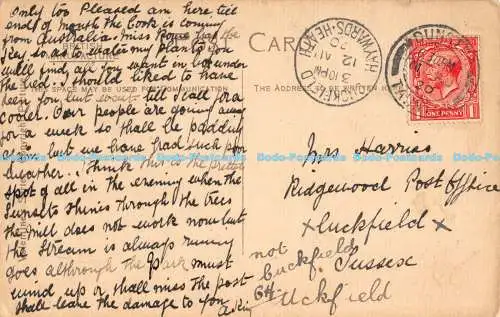 Only too Pleased am here till
end of month the Cook is coming
from Australia. Miss Rowe has the
Key so as to water my plants you
will find all you want in box under
the bed. I should liked to have
seen you but wont till I call for a
cooler. Our people are going away
for a week so shall be padding
also but we have had such poor
weather. I think this is the prettiest
spot of all in the evening when the
Sunsets shines through the trees
the mill does not work now but
the Stream is always running
goes although through the Park must
wind up or shall miss the post
shall leave the damage to you
BRITISH
MANUFACTURE
SPACE MAY BE USED FOR COMMUNICATION
CAR
THE ADDRESS TO BE WRITTEN
UCKFIELD
HAYWARDS-HEATH
3 30 PM
12
ONE PENNY
Mrs Harriss
Ridgewood Post Office
x Luckfield x
not Luckfield Sussex
GH. Uckfield
Dodo-Postcards